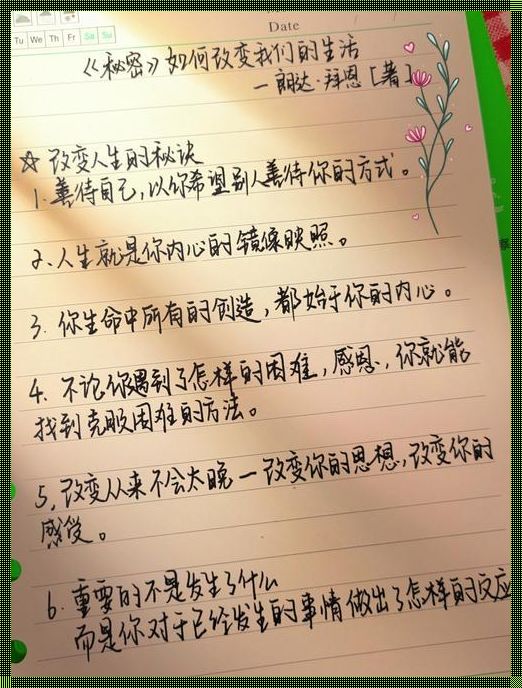 Date
Tu We Th Fr Sa Su
《秘密》如何改变我们的生活
— 朗达·拜恩 [著]
☆ 改变人生的秘诀
1. 善待自己,以你希望别人善待你的方式。
2. 人生就是你内心的镜像映照。
3. 你生命中所有的创造,都始于你的内心。
4. 不论你遇到了怎样的困难,感恩,你就能
找到克服困难的方法。
5, 改变从来不会太晚一改变你的思想,改变你的
感受。
6. 重要的不是发生了什么
而是你对于已经发生的事情做出了怎样的反应